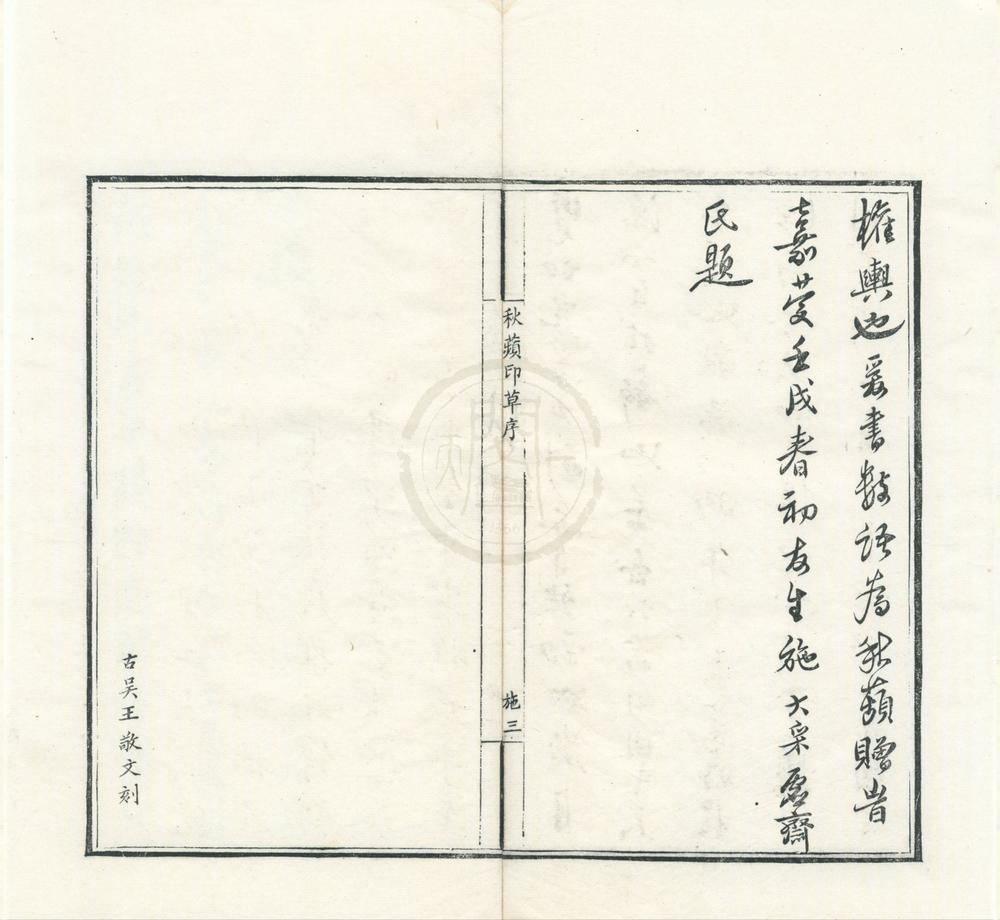 權輿也爰書數語為秋蘋贈旹
嘉慶壬戌春初友生施大采齋
氏題
秋蘋印草序
施三
古吳王敬文刻